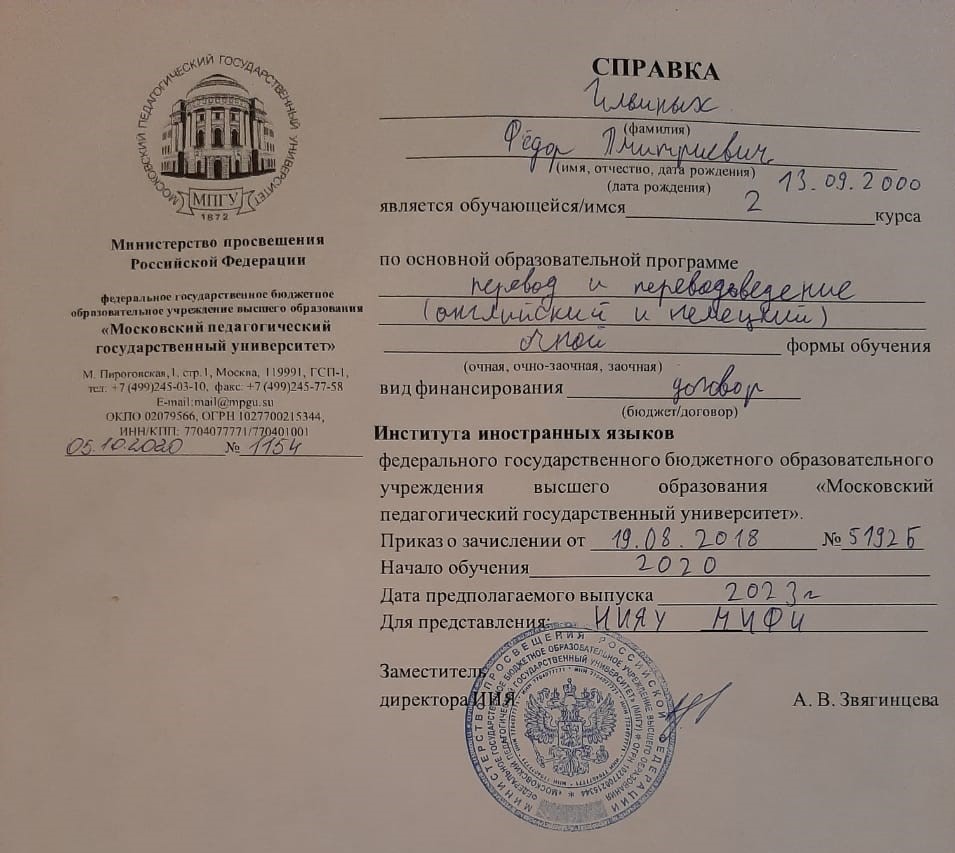 МОСКОВСКИЙ ПЕДАГОГИЧЕСКИЙ ГОСУДАРСТВЕННЫЙ УНИВЕРСИТЕТ
МПГУ
1872
Министерство просвещения
Российской Федерации
федеральное государственное бюджетное
образовательное учреждение высшего образования
«Московский педагогический
государственный университет»
М. Пироговская,1, стр.1, Москва, 119991, ГСП-1,
тел: +7(499)245-03-10, факс: +7(499)245-77-58
E-mail:mail@mpgu.su
ОКПО 02079566, ОГРН 1027700215344,
ИНН/КПП: 7704077771/770401001
05.10.2020 № 1154
СПРАВКА
Ильиных
(фамилия)
Фёдор Дмитриевич
(имя, отчество, дата рождения)
(дата рождения) 13.09.2000
является обучающейся/имся 2 курса
по основной образовательной программе
перевод и переводоведение
(английский и немецкий)
очной формы обучения
(очная, очно-заочная, заочная)
вид финансирования договор
(бюджет/договор)
Института иностранных языков
федерального государственного бюджетного образовательного
учреждения высшего образования «Московский
педагогический государственный университет».
Приказ о зачислении от 19.08.2018 № 5192Б
Начало обучения 2020
Дата предполагаемого выпуска 2023г
Для представления: НИЯУ МИФИ
Заместитель
директора ИИЯ А. В. Звягинцева
МИНИСТЕРСТВО ПРОСВЕЩЕНИЯ РОССИЙСКОЙ ФЕДЕРАЦИИ
ФЕДЕРАЛЬНОЕ ГОСУДАРСТВЕННОЕ БЮДЖЕТНОЕ ОБРАЗОВАТЕЛЬНОЕ УЧРЕЖДЕНИЕ ВЫСШЕГО ОБРАЗОВАНИЯ
«МОСКОВСКИЙ ПЕДАГОГИЧЕСКИЙ ГОСУДАРСТВЕННЫЙ УНИВЕРСИТЕТ» (МПГУ) * ОГРН 1027700215344 *
ИНН 7704077771